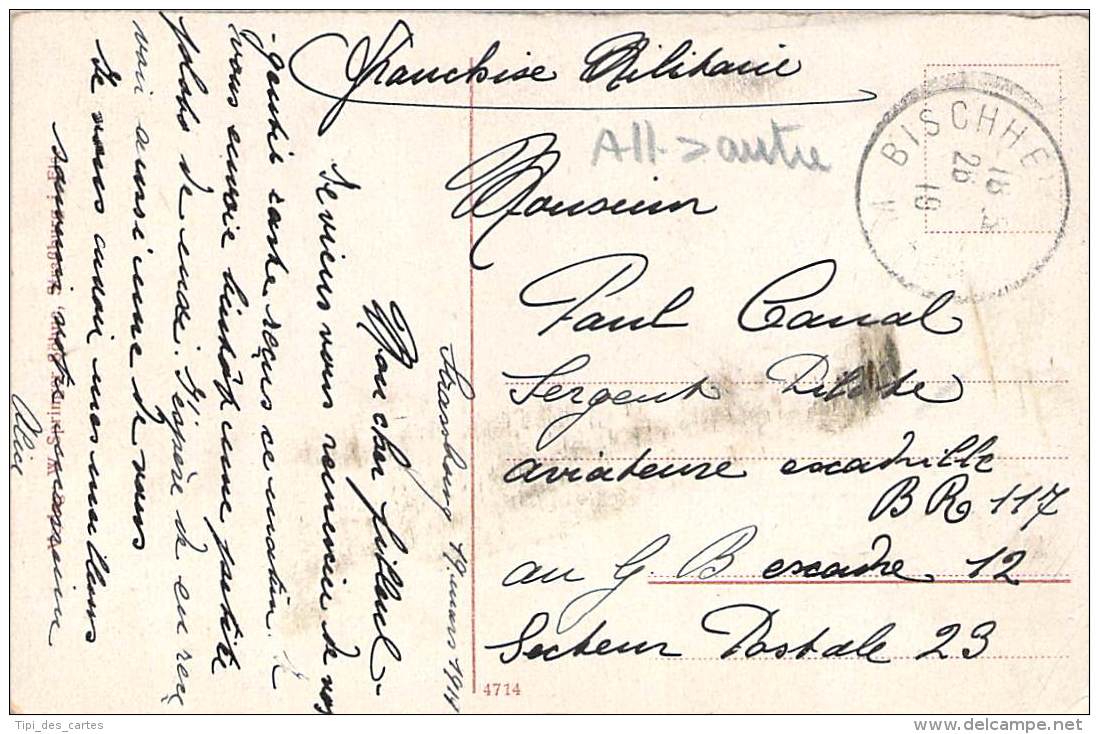 Franchise Militaire
All > autre
BISCHHE M
16 4
26
19
Monsieur
Paul Canal
Sergent Pilote
aviateure escadrille
BR 117
au G B escadre 12
Secteur Postale 23
4714
Strasbourg 19 mars 1919
Mon cher filleul
Je viens vous remercier de vos
gentil carte reçus ce matin. Je
vous envoie bientôt une petite
photo de moi. J'espère de en rece
voir aussi une de vous
Je vous
mes meilleurs
souvenir votre marraine
Alice
Tipi_des_cartes
www.delcampe.net